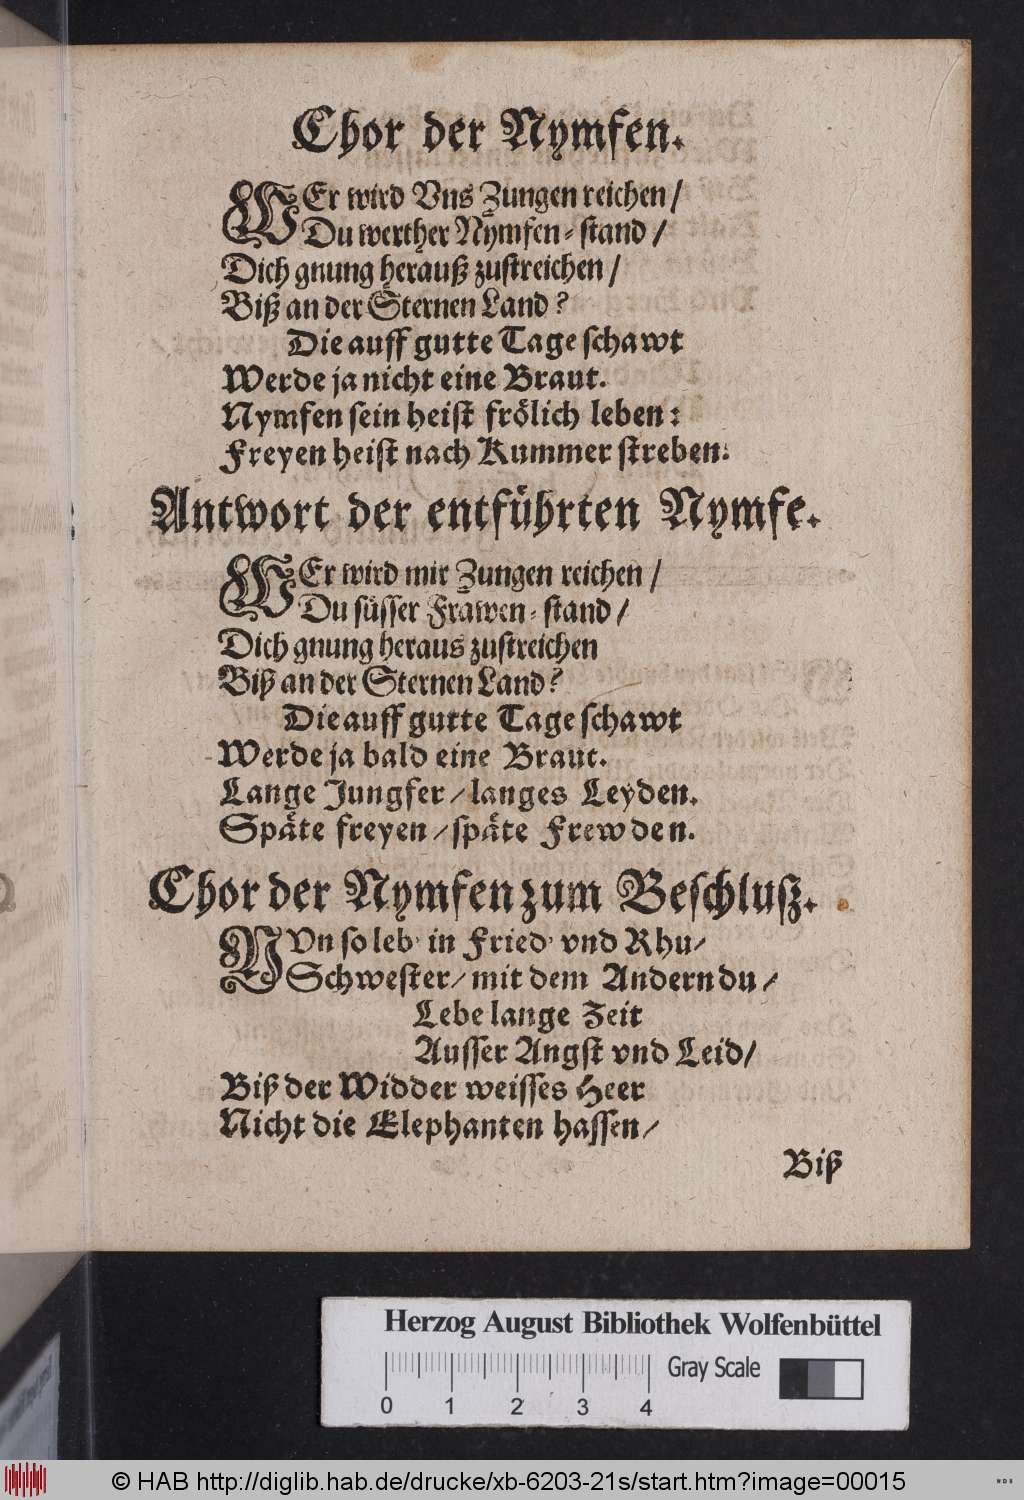 Chor der Nymfen.
WEr wird Vns Zungen reichen /
Du werther Nymfen-stand /
Dich gnung herauß zustreichen /
Biß an der Sternen Land?
Die auff gutte Tage schawt
Werde ja nicht eine Braut.
Nymfen sein heist frölich leben:
Freyen heist nach Kummer streben.
Antwort der entführten Nymfe.
WEr wird mir Zungen reichen /
Du süsser Frawen-stand /
Dich gnung heraus zustreichen
Biß an der Sternen Land?
Die auff gutte Tage schawt
Werde ja bald eine Braut.
Lange Jungfer / langes Leyden.
Späte freyen / späte Frewden.
Chor der Nymfen zum Beschluß.
NVn so leb' in Fried' vnd Rhu /
Schwester / mit dem Andern du /
Lebe lange Zeit
Ausser Angst vnd Leid /
Biß der Widder weisses Heer
Nicht die Elephanten hassen /
Biß
Herzog August Bibliothek Wolfenbüttel
Gray Scale
0 1 2 3 4
© HAB http://diglib.hab.de/drucke/xb-6203-21s/start.htm?image=00015